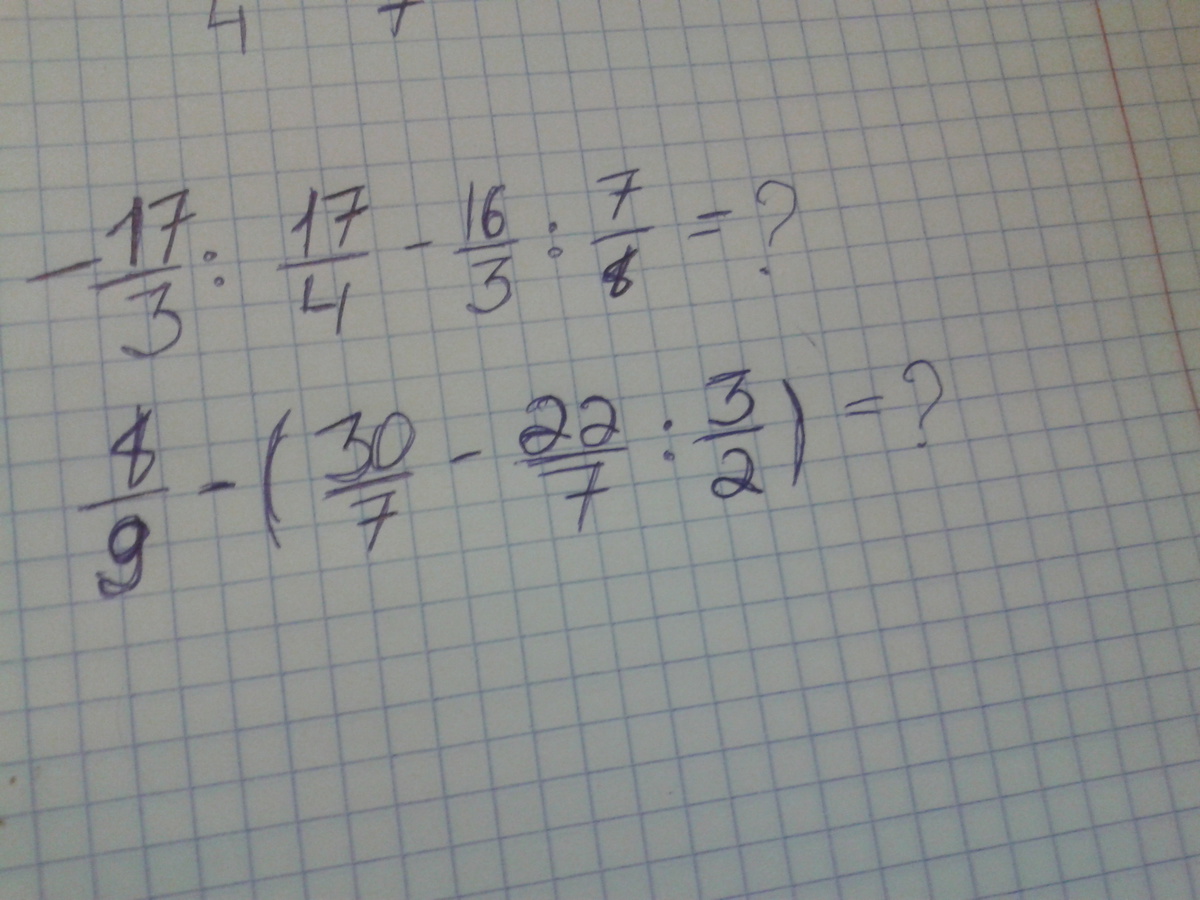 4 7
-17/3 : 17/4 - 16/3 : 7/8 = ?
8/9 - (30/7 - 22/7 : 3/2) = ?